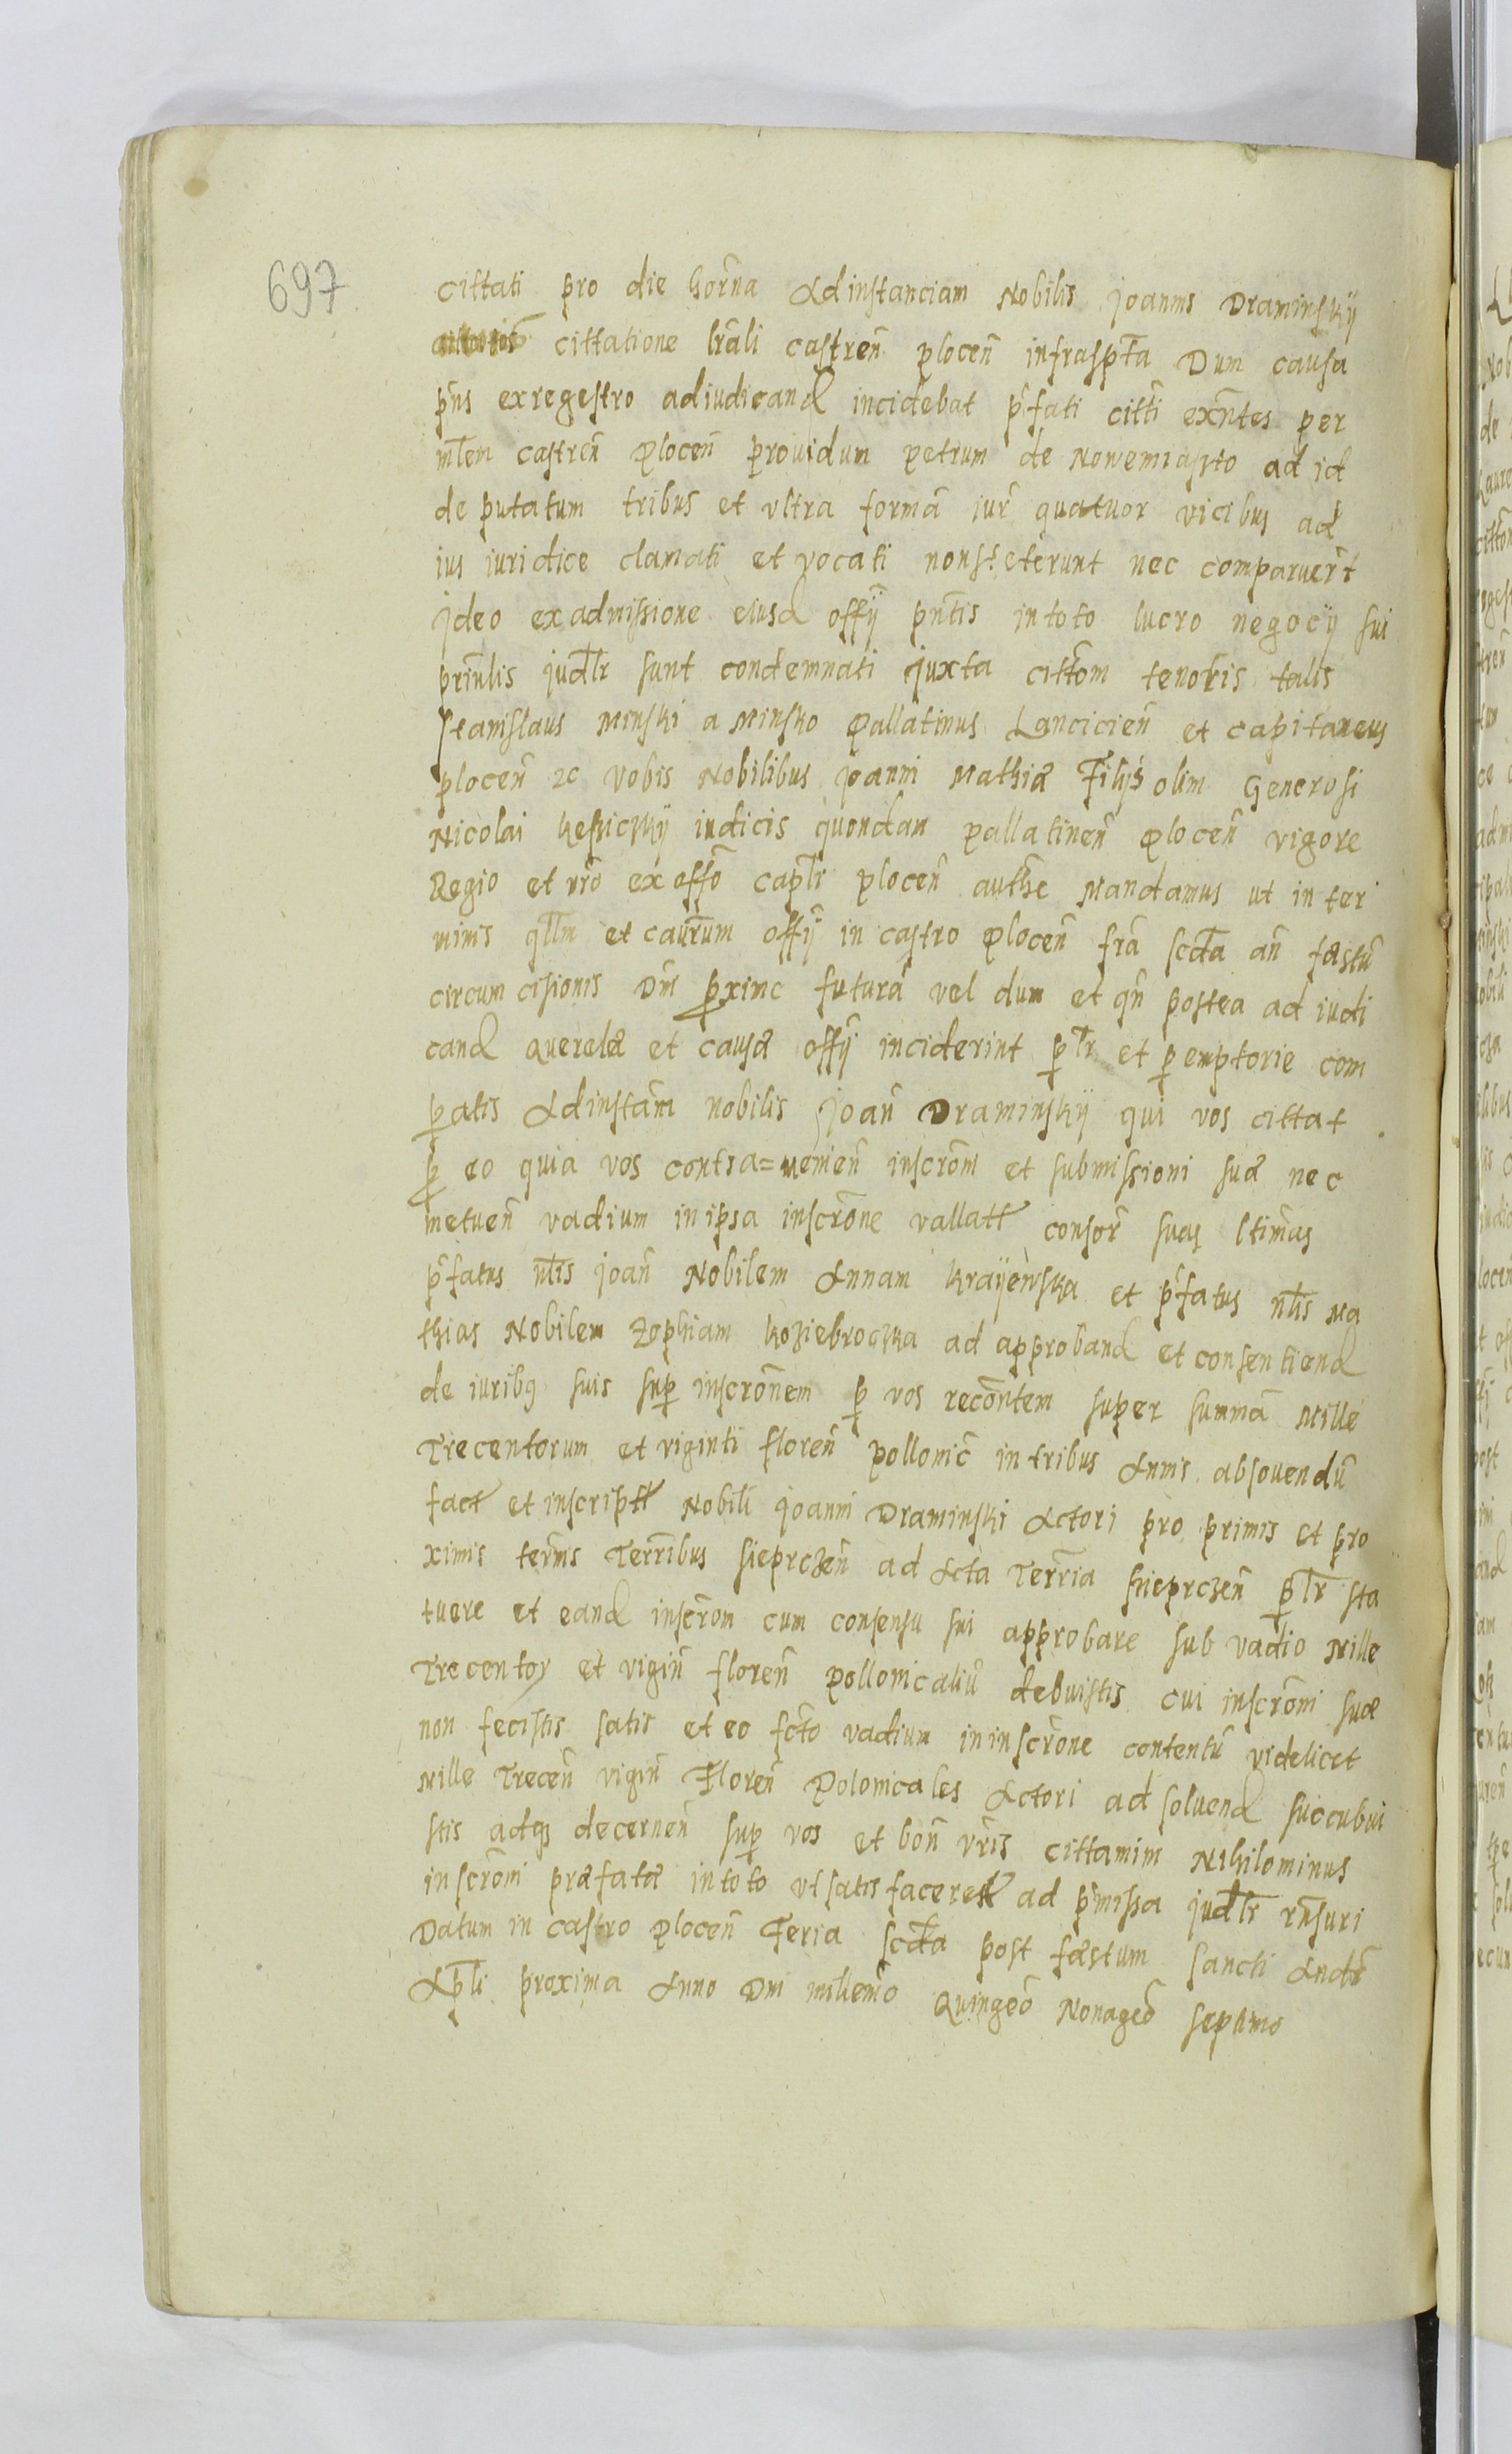 697
cittati pro die horña Adinstanciam Nobilis Joannis Draminskÿ
cittatione lr̃ali castreñ ploceñ infraspt̃a Dum causa
pñs exregestro adiudicand incidebat p̃fati citti exñtes per
ml̃em castreñ plocen prouidum petrum de Nowemiasto ad id
deputatum tribus et vltra formã iur̃ quatuor vicibus ad
ius iuridice clamati et vocati nonsteterunt nec comparuer̃t
Jdeo exadmissione eiusd offÿ pñtis intoto lucro negocÿ sui
prinlis judl̃r sunt condemnati juxta citt̃om tenoris talis
Stanislaus Minski a Minsko Pallatinus Lancicieñ et capitaneus
ploceñ 2c vobis Nobilibus Joanni Mathiæ Filijs olim Generosi
Nicolai Kesiczkÿ iudicis quondam pallatineñ ploceñ vigore
Regio et nr̃o exoffõ capl̃r ploceñ auth̃e Mandamus ut in ter
minis q̃lm et caũrum offÿ in castro ploceñ fr̃a scd̃a añ fæstũ
circumcisionis Dñi p̱xime futurã vel dum et qñ postea ad iudi
cand querelæ et causæ offÿ inciderint p̱lr̃ et p̱emptorie com
p̱atis Adinstãm nobilis Joañ Draminskÿ qui vos cittat
p̱ eo quia vos contra=venieñ inscrõni et submissioni suæ nec
metueñ vadium inipsa inscrõne vallatt consor̃ suas ltimas
p̃fatus nl̃is Joañ Nobilem Annam Krayewska et p̃fatus nl̃is Ma
thias Nobilem Zophiam Koziebroczka ad approband et consentiend
de iuribꝫ suis sup̱ inscrõnem p̱ vos recõntem super summã Mille
Trecentorum et viginti floreñ pollonic̃ intribus Annis absouendũ
fact et inscriptt Nobili Joanni Draminski Actori pro primis et pro
ximis ter̃nis Terrĩbus Sieprczeñ ad Acta Terrĩa Sieprczeñ p̱lr̃ sta
tuere et eand inscrõn cum consensu sui approbare sub vadio Mille
Trecentoꝝ et vigiñ floreñ pollonicaliũ debuistis cui inscrõni suæ
non fecistis satis et eo fct̃o vadium ininscrõne contentũ videlicet
Mille Treceñ vigiñ Floreñ Polonicales Actori ad soluend succubui
stis adqꝫ decerneñ sup̱ vos et bon̄ vr̃is cittamini Nihilominus
inscrõni præfatæ intoto vt satis faceret ad p̃missa judl̃r rñsuri
Datum in castro ploceñ Feria scd̃a post fæstum sancti Andr̃
Apl̃i proxima Anno Dni millem̃o Quingeõ Nonageõ septimo